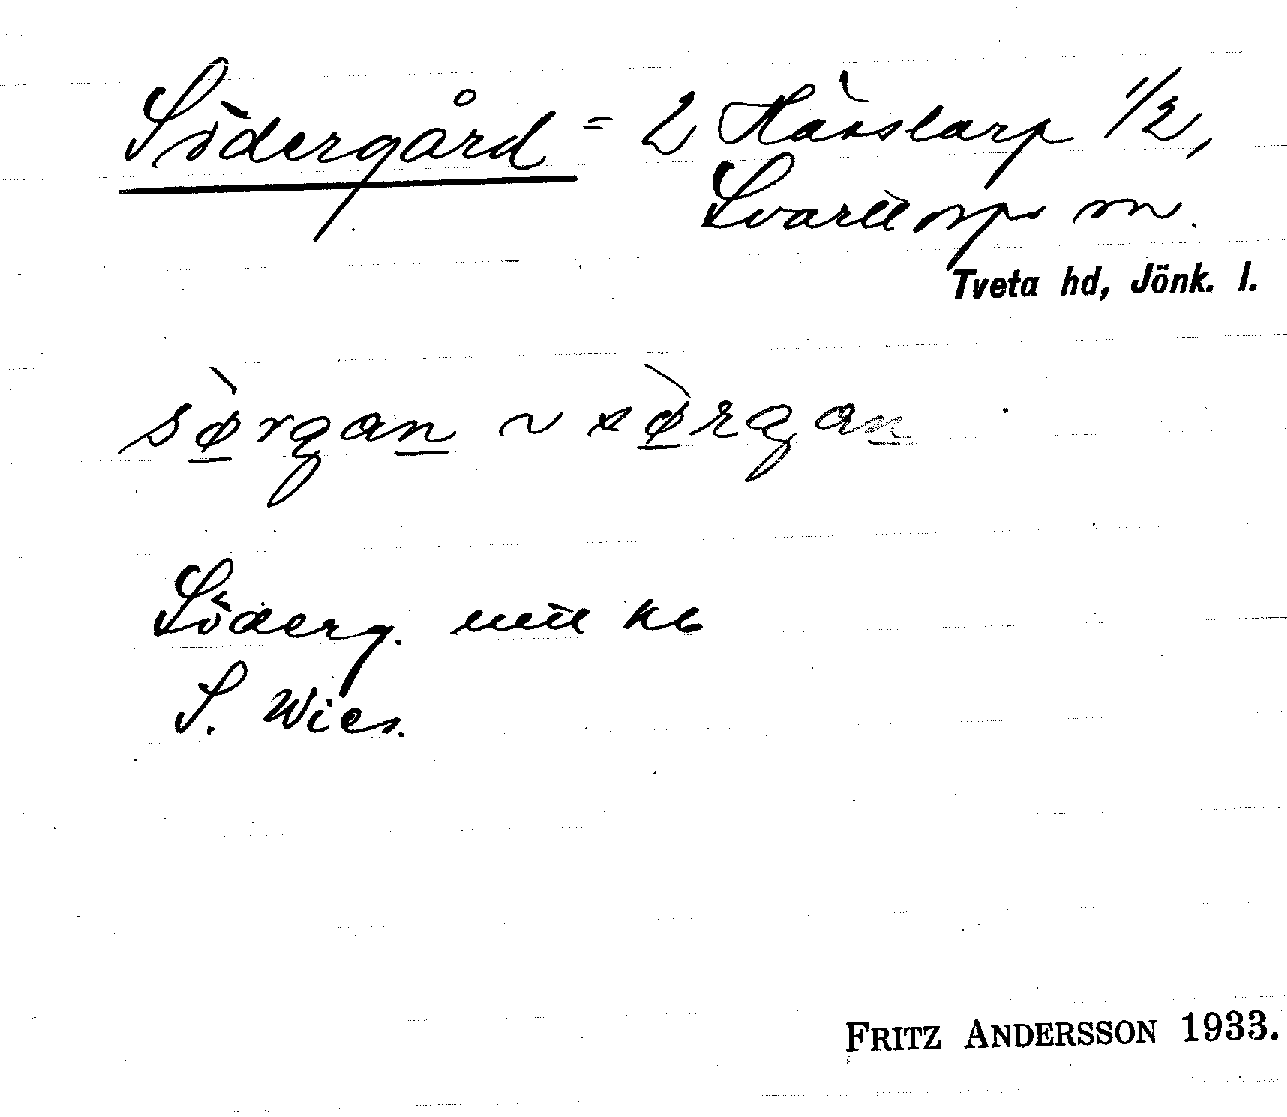 Södergård = 2 Hässlarp 1/2,
Svarttorps sn.
Tveta hd, Jönk. l.
sø̀rgan ~ sø̀rgan
Söderg. utt kb
S. Wies.
FRITZ ANDERSSON 1933.